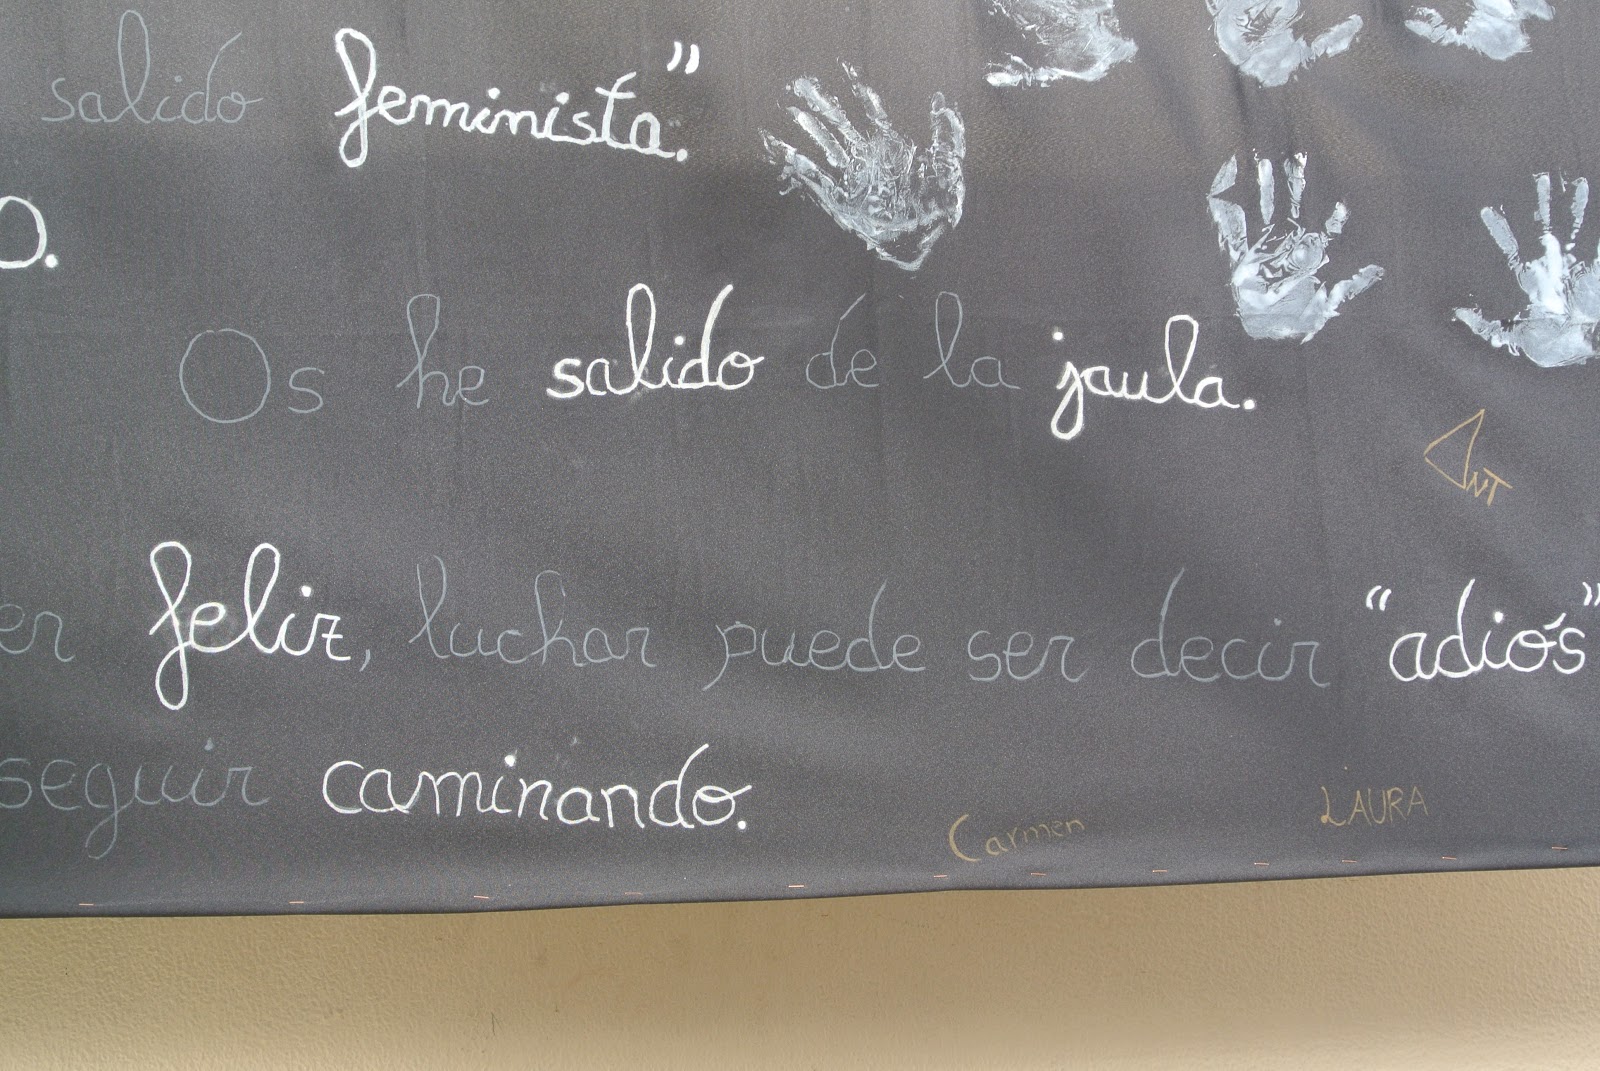 salido feminista".
o.
Os he salido de la jaula.
er feliz, luchar puede ser decir "adiós"
seguir caminando.
Carmen
LAURA